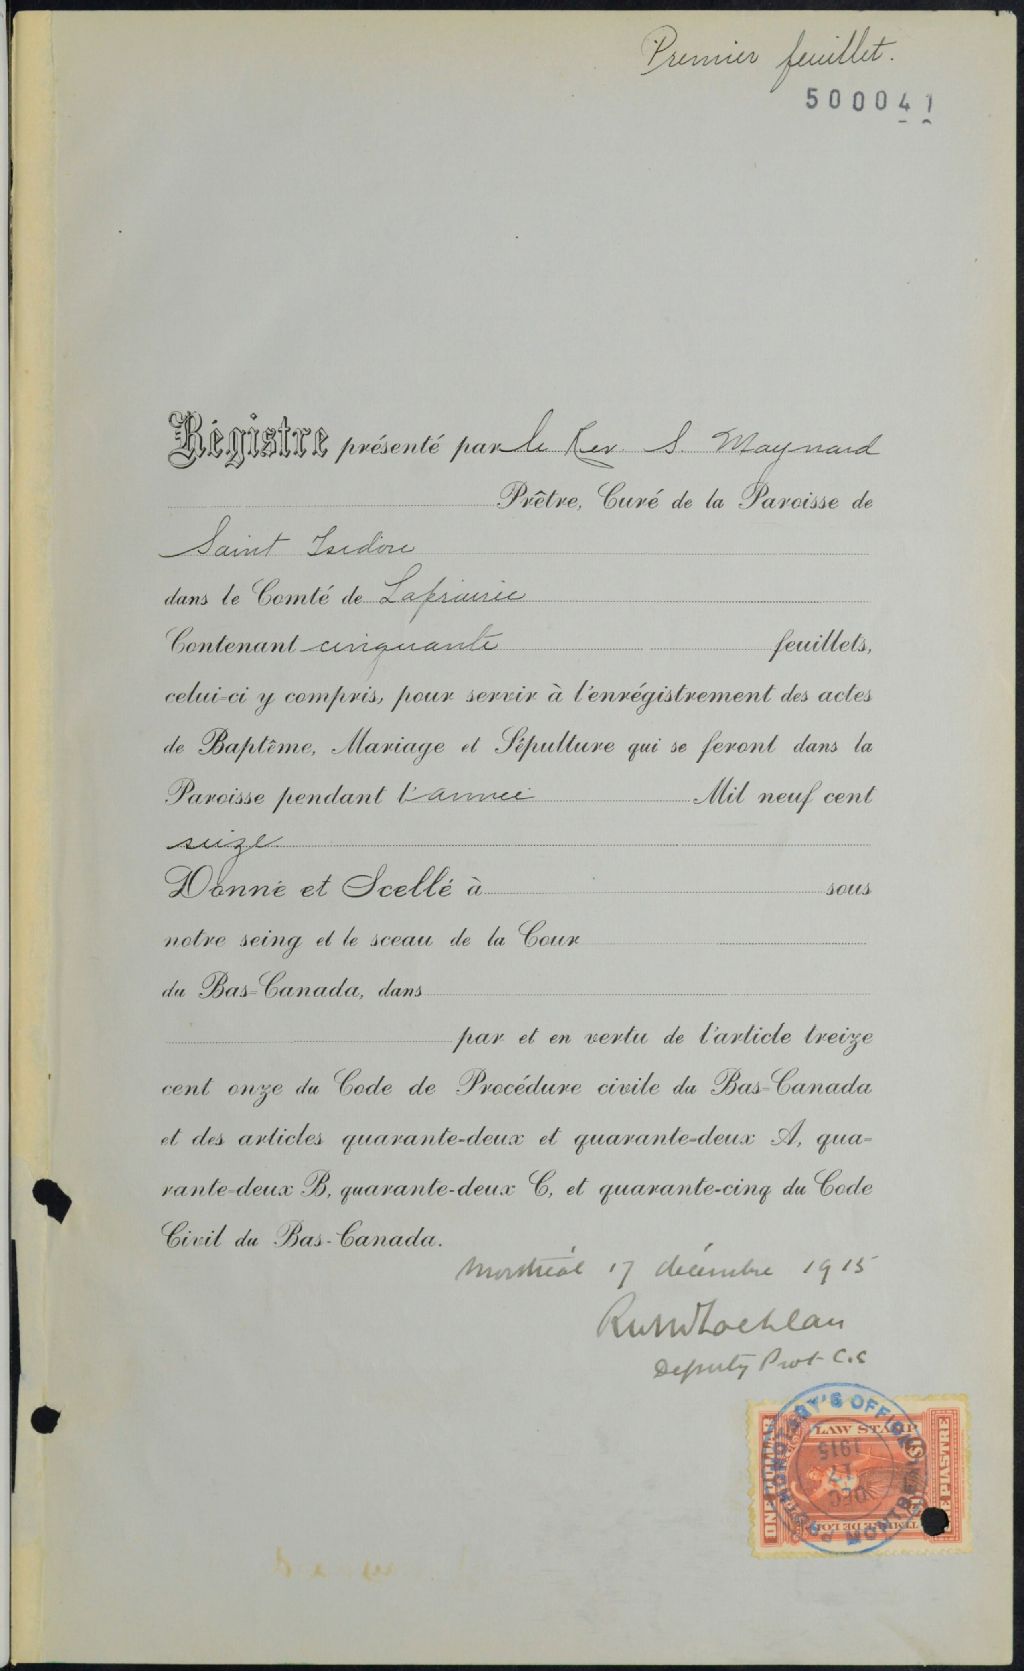 Premier feuillet.
500041
Régistre présenté par le Rev. S. Maynard
Prêtre, Curé de la Paroisse de
Saint Isidore
dans le Comté de Laprairie
Contenant cinquante feuillets,
celui-ci y compris, pour servir à l'enrégistrement des actes
de Baptême, Mariage et Sépulture qui se feront dans la
Paroisse pendant l'année Mil neuf cent
seize
Donné et Scellé à sous
notre seing et le sceau de la Cour
du Bas-Canada, dans
par et en vertu de l'article treize
cent onze du Code de Procédure civile du Bas-Canada
et des articles quarante-deux et quarante-deux A, qua-
rante-deux B, quarante-deux C, et quarante-cinq du Code
Civil du Bas-Canada.
Montréal 17 décembre 1915
Deputy Prot. C.S
PROTHONOTARY'S OFFICE
MONTREAL
DEC
17
1915
LAW STAMP
ONE DOLLAR
$1
UNE PIASTRE
TIMBRE DE LOI